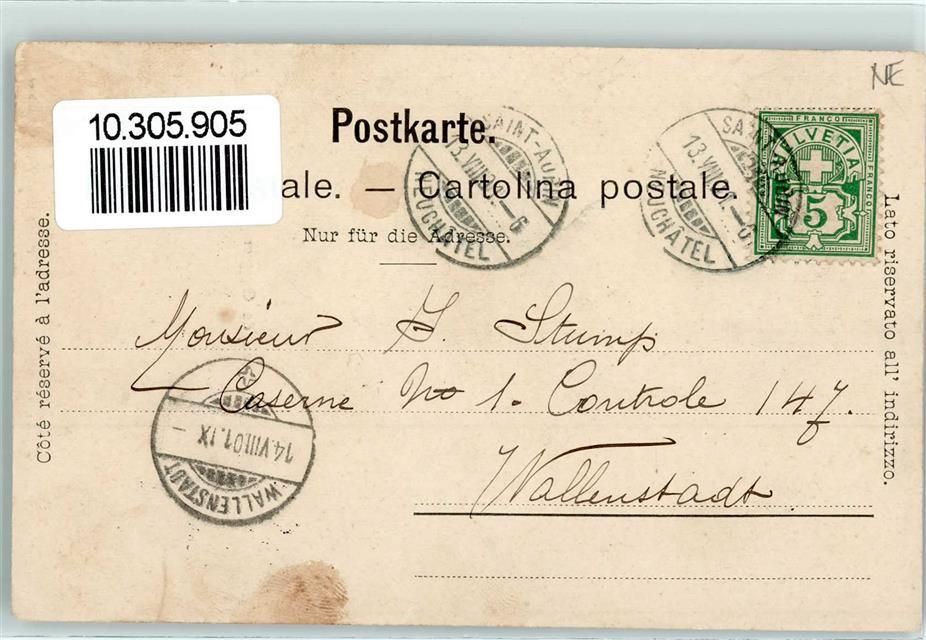 NE
10.305.905
Postkarte.
ale. — Cartolina postale.
Nur für die Adresse.
Côté réservé à l'adresse.
Lato riservato all' indirizzo.
SAINT-AUBIN
13.VIII.01.-6
NEUCHÂTEL
13.VIII.01.-6
NEUCHÂTEL
FRANCO
HELVETIA
FRANCO
FRANCO
5
Monsieur J. Stump
Caserne No 1. Controle 147.
Wallenstadt
14.VIII.01.IX-
WALLENSTADT